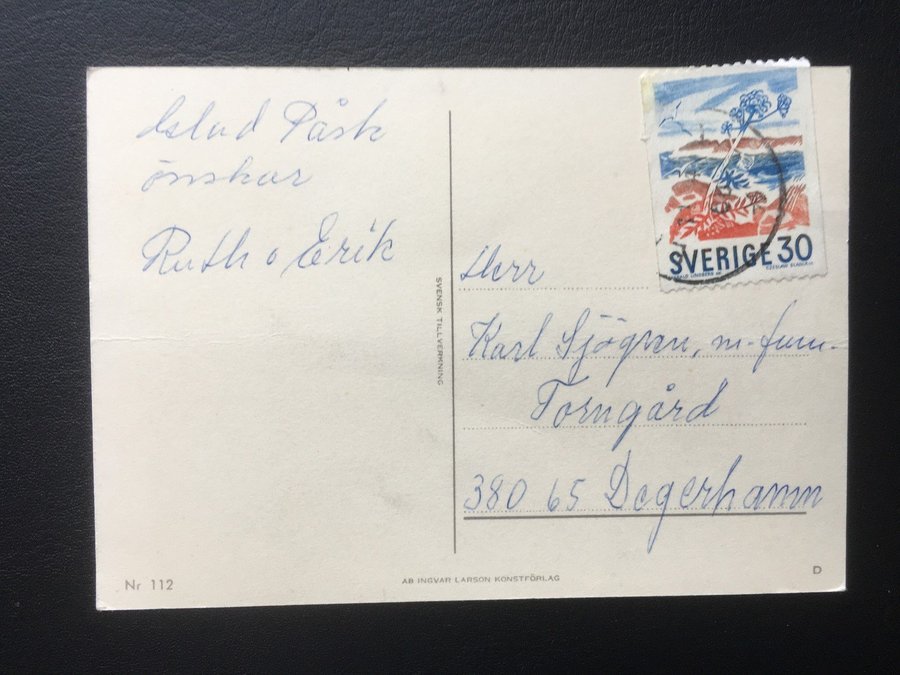 Glad Påsk
önskar
Ruth o Erik
SVENSK TILLVERKNING
SVERIGE 30
Herr
Karl Sjögren, m. fam.
Torngård
380 65 Degerhamn
Nr 112
AB INGVAR LARSON KONSTFÖRLAG
D